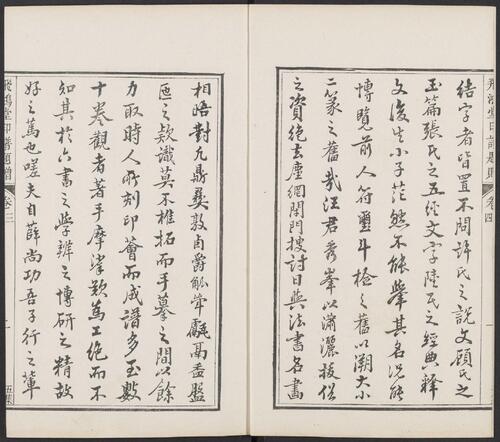 結字者皆置不問許氏之說文顧氏之
玉篇張氏之五經文字陸氏之經典釋
文後生小子茫然不能舉其名況能
博覽前人符璽斗檢之舊以溯大小
二篆之舊哉汪君秀峯以瀟灑拔俗
之資絕去塵網閉門搜討日與法書名畫
相晤對凡鼎彝敦卣爵觚常甗鬲盉盤
匜之款識莫不椎拓而手摹之間以餘
力取時人所刻印薈而成譜多至數
十卷觀者著手摩挲歎篤工絕而不
知其於六書之學辨之博研之精故
好之篤也嗟夫自薛尚功吾子行之輩
飛鴻堂印譜題贈
卷三
五集
卷四